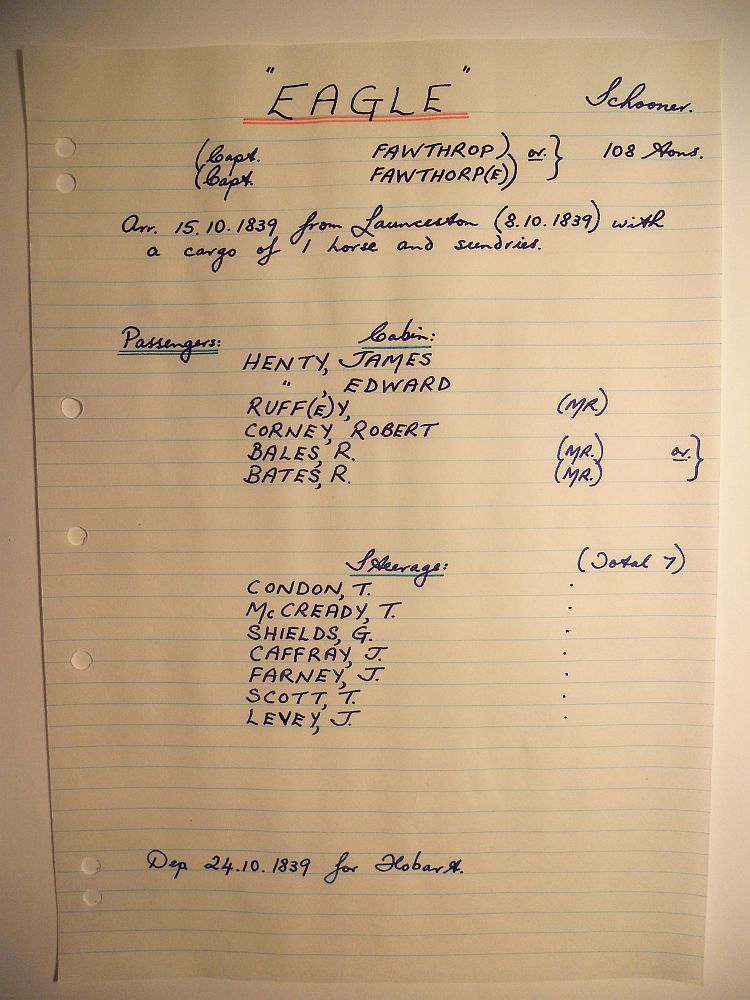 "EAGLE" Schooner.
(Capt. FAWTHROP) or. } 108 Tons.
(Capt. FAWTHORP(E))
Arr. 15.10.1839 from Launceston (8.10.1839) with
a cargo of 1 horse and sundries.
Passengers: Cabin:
HENTY, JAMES
" , EDWARD
RUFF(E)Y, (MR)
CORNEY, ROBERT
BALES, R. (MR.) or. }
BATES, R. (MR.)
Steerage: (Total 7)
CONDON, T. .
McCREADY, T. .
SHIELDS, G. .
CAFFRAY, J. .
FARNEY, J. .
SCOTT, T. .
LEVEY, J. .
Dep. 24.10.1839 for Hobart.